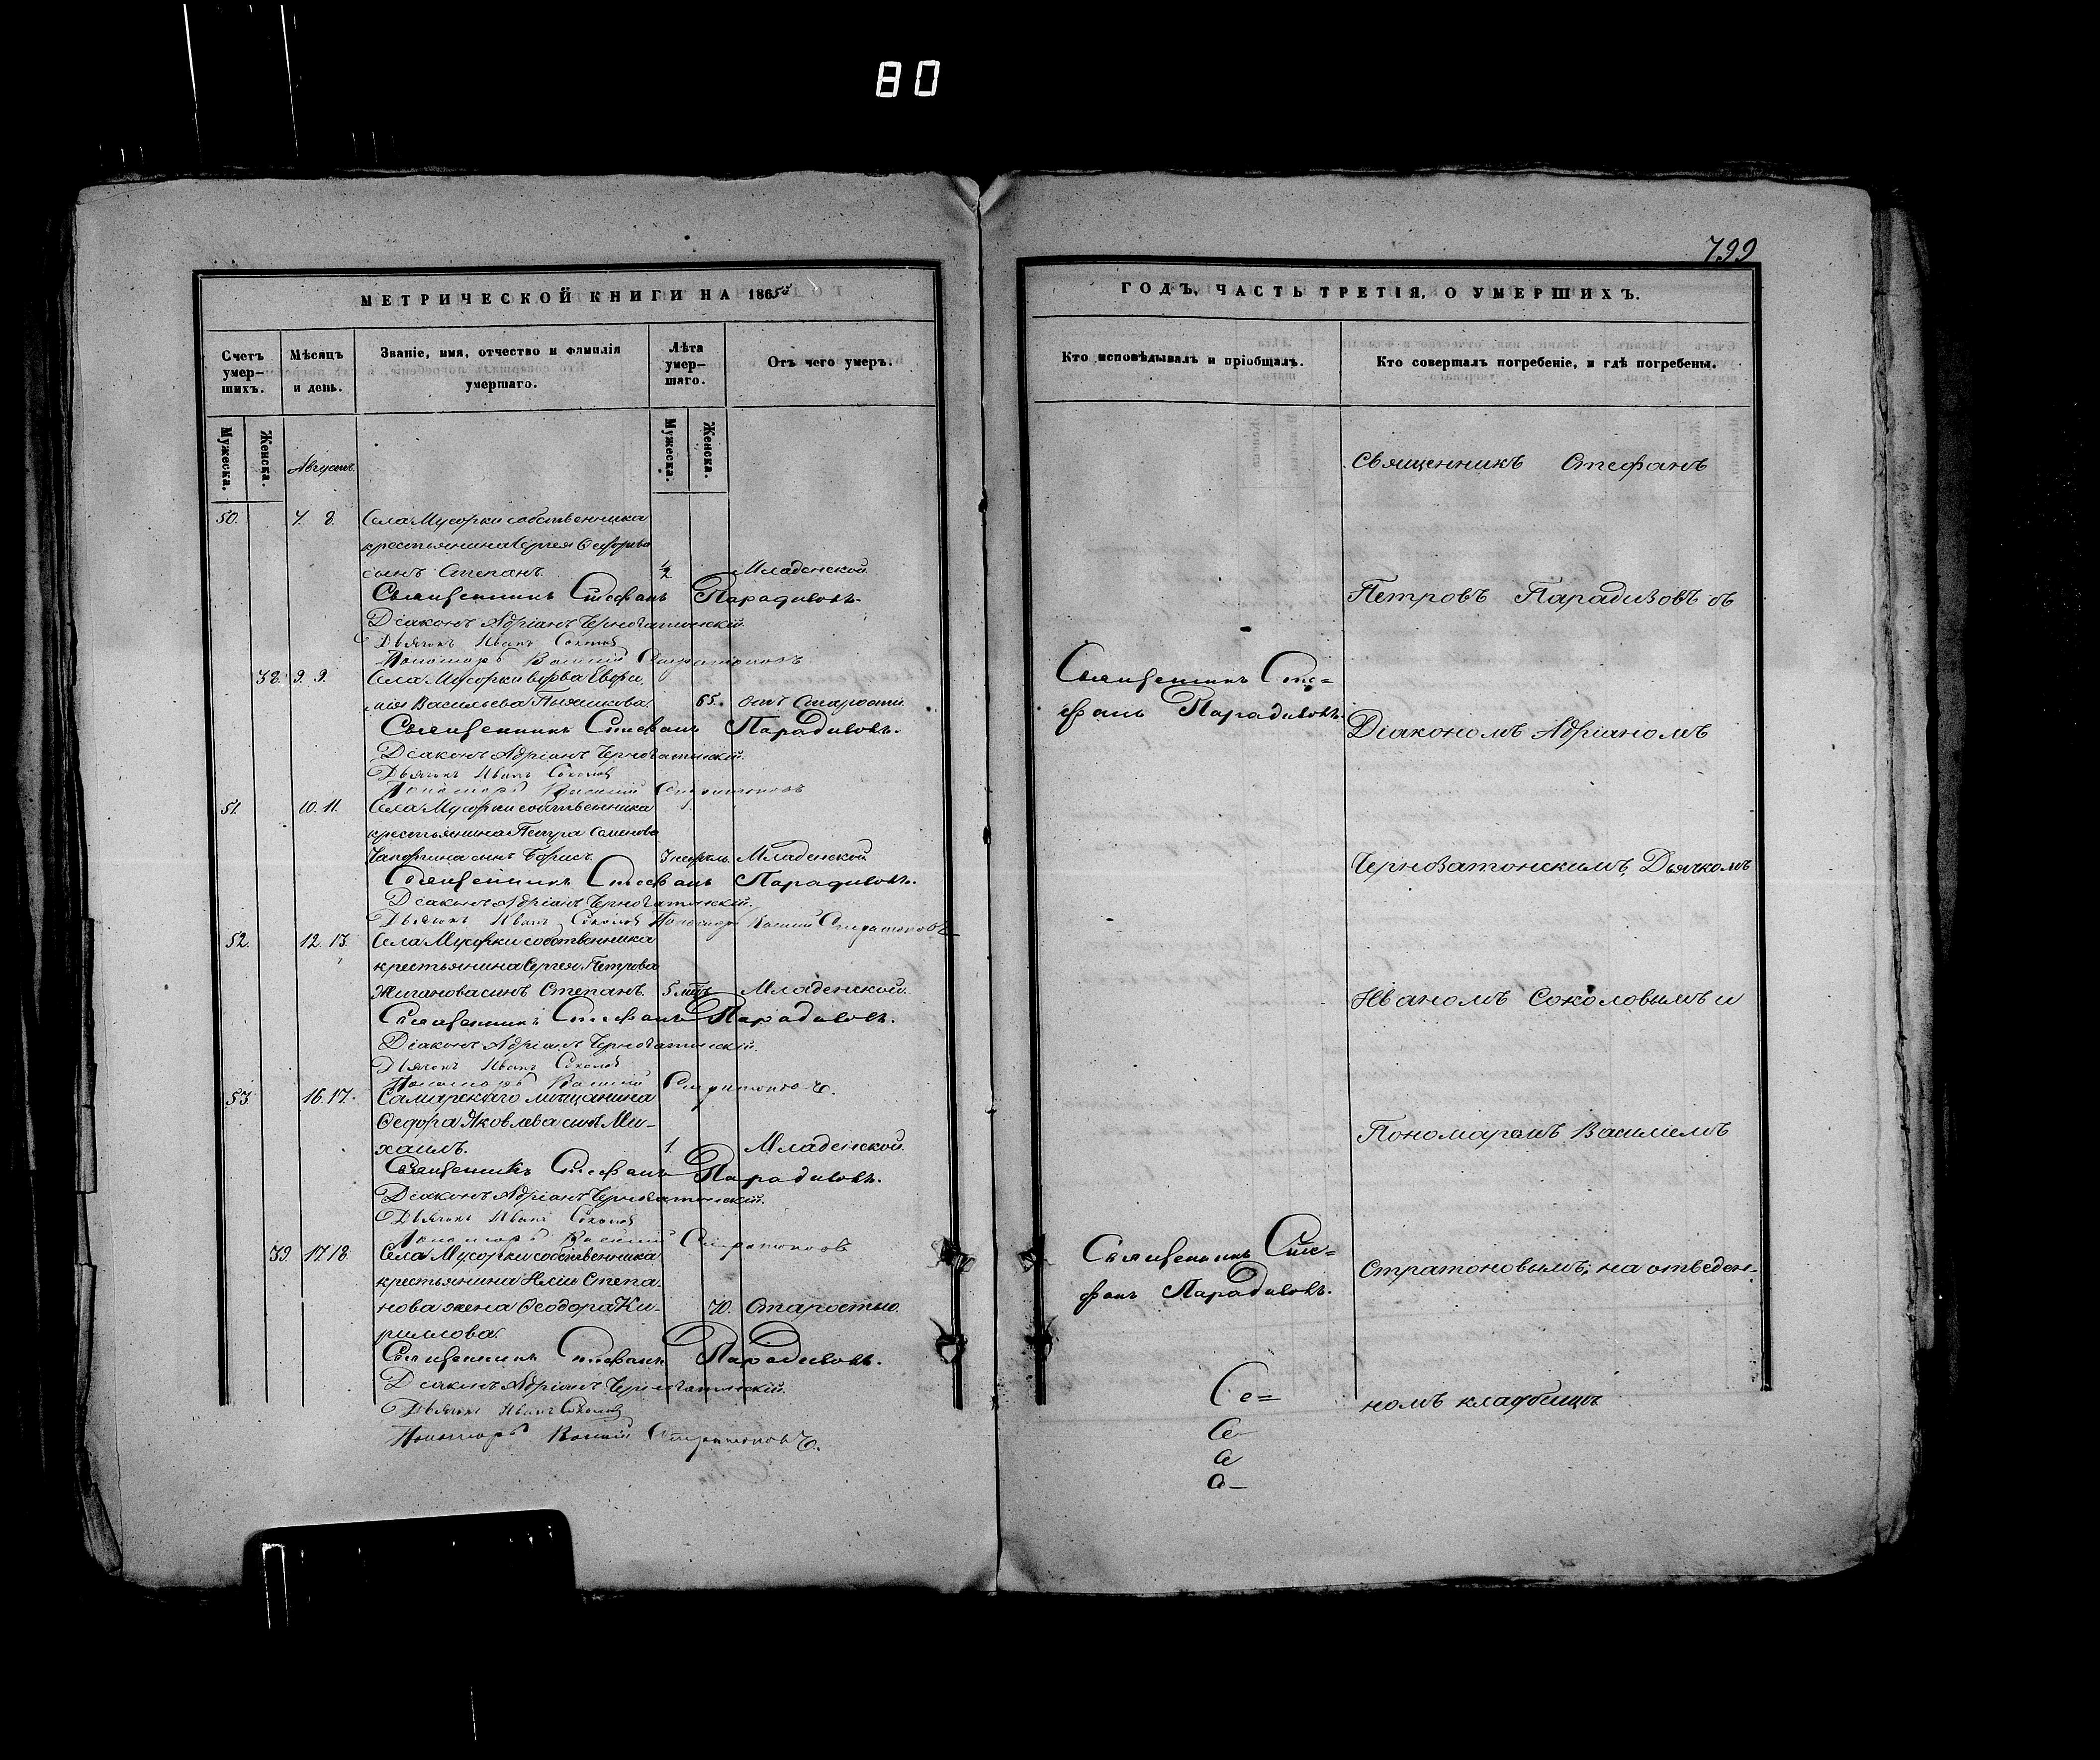 80
799
МЕТРИЧЕСКОЙ КНИГИ НА 1865й
Счетъ умер-шихъ.
Мѣсяцъ и день.
Званіе, имя, отчество и фамилія умершаго.
Лѣта умер-шаго.
Отъ чего умеръ.
Мужеска.
Женска.
Августъ.
Мужеска.
Женска.
50. 7. 8. Села Мусорки собственника
крестьянина Сергея Ѳедорова
сынъ Степанъ. ½ Младенской
Священникъ Стефанъ Парадизовъ.
Діаконъ Адріанъ Черновatонскій.
Дьячокъ Иванъ Соколовъ
Пономарь Василій Стратоновъ
38. 9. 9. Села Мусорки вдова Евфи
мія Васильева 65. отъ старости
Священникъ Стефанъ Парадизовъ.
Діаконъ Адріанъ Черноватонскій.
Дьячокъ Иванъ Соколовъ
Пономарь Василій Стратоновъ
51. 10. 11. Села Мусорки собственника
крестьянина Петра Семенова
сынъ Борисъ. 3 недѣль. Младенской
Священникъ Стефанъ Парадизовъ.
Діаконъ Адріанъ Черноватонскій.
Дьячокъ Иванъ Соколовъ Пономарь Василій Стратоновъ
52. 12. 13. Села Мусорки собственника
крестьянина Сергея Петрова
Жиганова сынъ Степанъ. 5 мцъ Младенской.
Священникъ Стефанъ Парадизовъ.
Діаконъ Адріанъ Черноватонскій.
Дьячокъ Иванъ Соколовъ
Пономарь Василій Стратоновъ.
53. 16. 17. Самарскаго мѣщанина
Ѳедора Яковлева сынъ Ми-
хаилъ. 1. Младенской.
Священникъ Стефанъ Парадизовъ.
Діаконъ Адріанъ Черноватонскій.
Дьячокъ Иванъ Соколовъ
Пономарь Василій Стратоновъ
39. 17. 18. Села Мусорки собственника
крестьянина Иліи Степа-
нова жена Ѳеодора Ки-
риллова. 70. Старостью.
Священникъ Стефанъ Парадизовъ.
Діаконъ Адріанъ Черноватонскій.
Дьячокъ Иванъ Соколовъ
Пономарь Василій Стратоновъ.
ГОДЪ, ЧАСТЬ ТРЕТІЯ, О УМЕРШИХЪ.
Кто исповѣдывалъ и пріобщалъ.
Кто совершалъ погребеніе, и гдѣ погребены.
Священникъ Сте=
фанъ Парадизовъ.
Священникъ Сте=
фанъ Парадизовъ.
Се=
Священникъ Стефанъ
Петровъ Парадизовъ съ
Діакономъ Адріаномъ
Черноватонскимъ, Дьячкомъ
Иваномъ Соколовымъ и
Пономаремъ Василіемъ
Стратоновымъ; на отведен-
номъ кладбищѣ